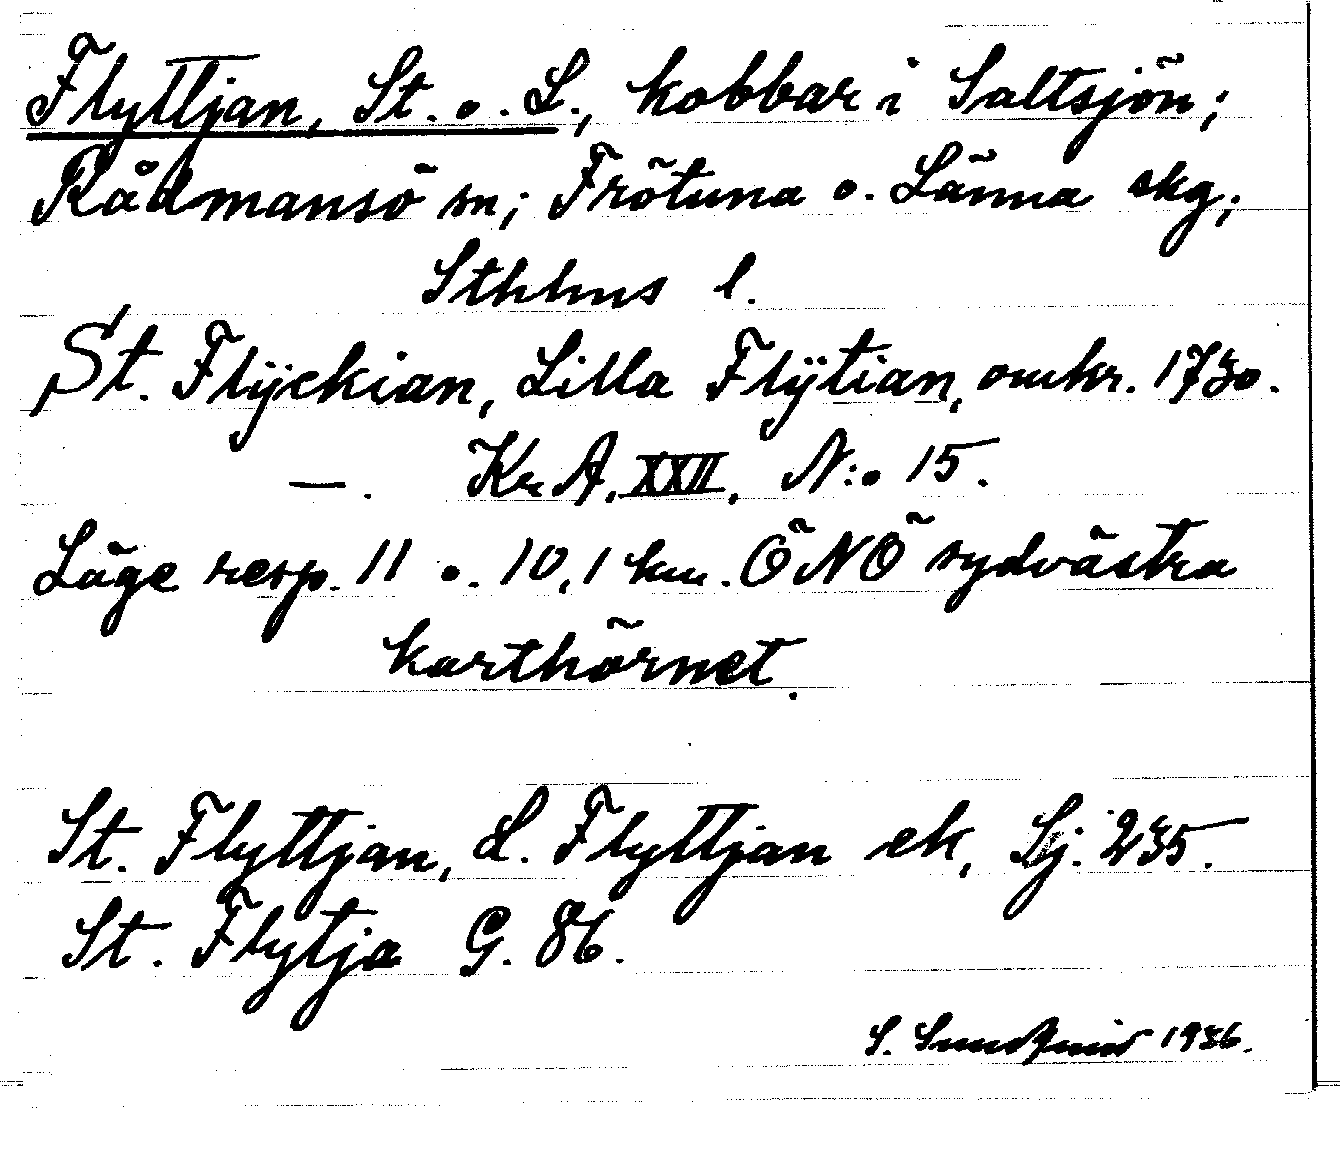 Flyttjan, St. o. L., kobbar i Saltsjön;
Rådmansö sn; Frötuna o. Länna skg;
Sthlms l.
St. Flÿckian, Lilla Flÿtian, omkr. 1730.
—. Kr. A. XXII, N:o 15.
Läge resp. 11 o. 10,1 km. ÖNÖ sydvästra
karthörnet.
St. Flyttjan, L. Flyttjan ek, Sj. 235.
St. Flytja G. 86.
S. 1936.